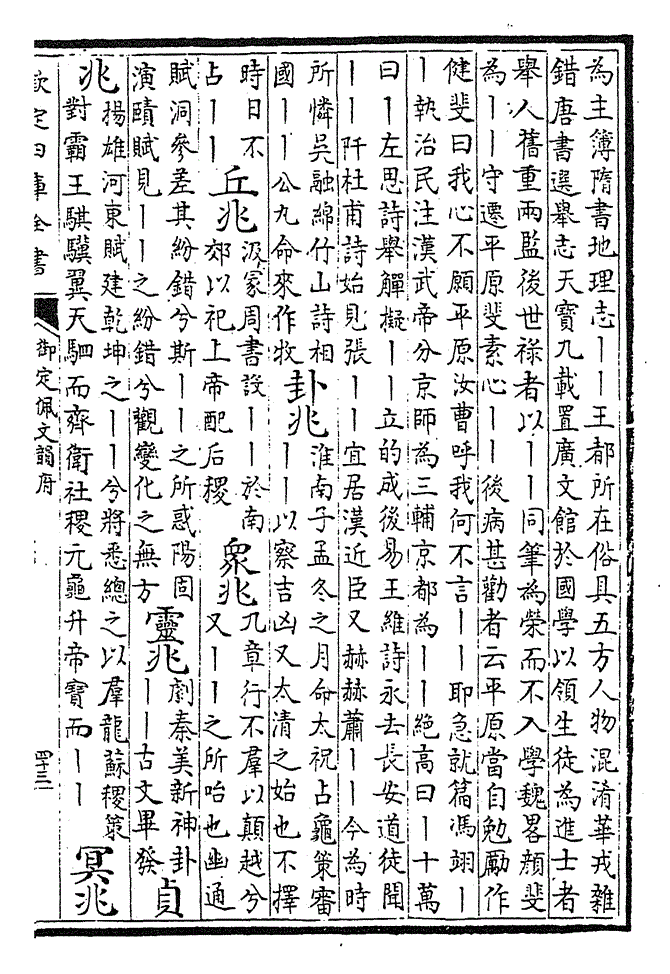 為主簿隋書地理志丨丨王都所在俗具五方人物混淆華戎雜
錯唐書選舉志天寶九載置廣文館於國學以領生徒為進士者
舉人舊重兩監後世祿者以丨丨同筆為榮而不入學魏畧顏斐
為丨丨守遷平原斐素心丨丨後病甚勸者云平原當自勉勵作
健斐曰我心不願平原汝曹呼我何不言丨丨耶急就篇馮翊丨
丨執治民注漢武帝分京師為三輔京都為丨丨絕高曰丨十萬
曰丨左思詩舉觶擬丨丨立的成後易王維詩永去長安道徒聞
丨丨阡杜甫詩始見張丨丨宜居漢近臣又赫赫蕭丨丨今為時
所憐吳融綿竹山詩相
國丨丨公九命來作牧
卦兆
淮南子孟冬之月命太祝占龜策審
丨丨以察吉凶又太清之始也不擇
時日不
占丨丨
丘兆
汲冡周書設丨丨於南
郊以祀上帝配后稷
衆兆
九章行不羣以顛越兮
又丨丨之所咍也幽通
賦洞參差其紛錯兮斯丨丨之所惑陽固
演賾賦見丨丨之紛錯兮觀變化之無方
靈兆
劇秦美新神卦
丨丨古文畢發
貞
兆
揚雄河東賦建乾坤之丨丨兮將悉總之以羣龍蘇稷策
對霸王騏驥翼天駟而齊衛社稷元龜升帝寶而丨丨
冥兆
欽定四庫全書
御定佩文韻府
四十三